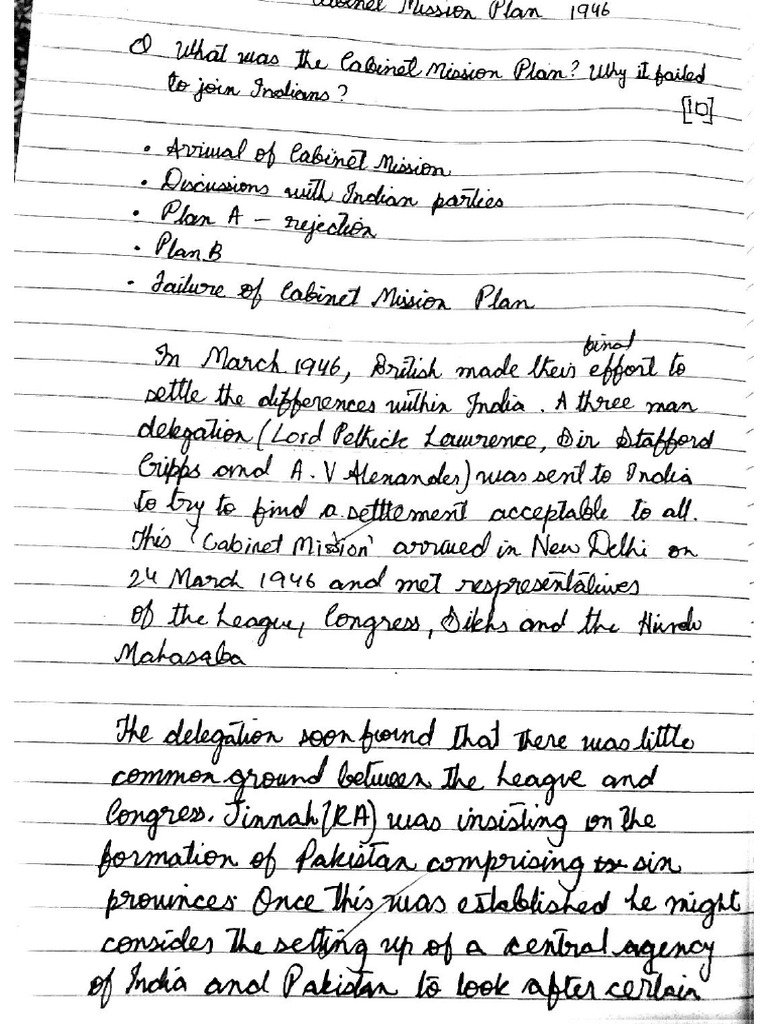 Cabinet Mission Plan 1946
Q What was the Cabinet Mission Plan? Why it failed
to join Indians?
[10]
• Arrival of Cabinet Mission
• Discussions with Indian parties
• Plan A – rejection
• Plan B
• Failure of Cabinet Mission Plan
final
In March 1946, British made their effort to
settle the differences within India. A three man
delegation (Lord Pethick Lawrence, Sir Stafford
Cripps and A.V Alexander) was sent to India
to try to find a settlement acceptable to all.
This 'Cabinet Mission' arrived in New Delhi on
24 March 1946 and met respresentatives
of the League, Congress, Sikhs and the Hindu
Mahasaba
The delegation soon found that there was little
common ground between the League and
Congress. Jinnah (RA) was insisting on the
formation of Pakistan comprising six
provinces. Once this was established he might
consider the setting up of a central agency
of India and Pakistan to look after certain